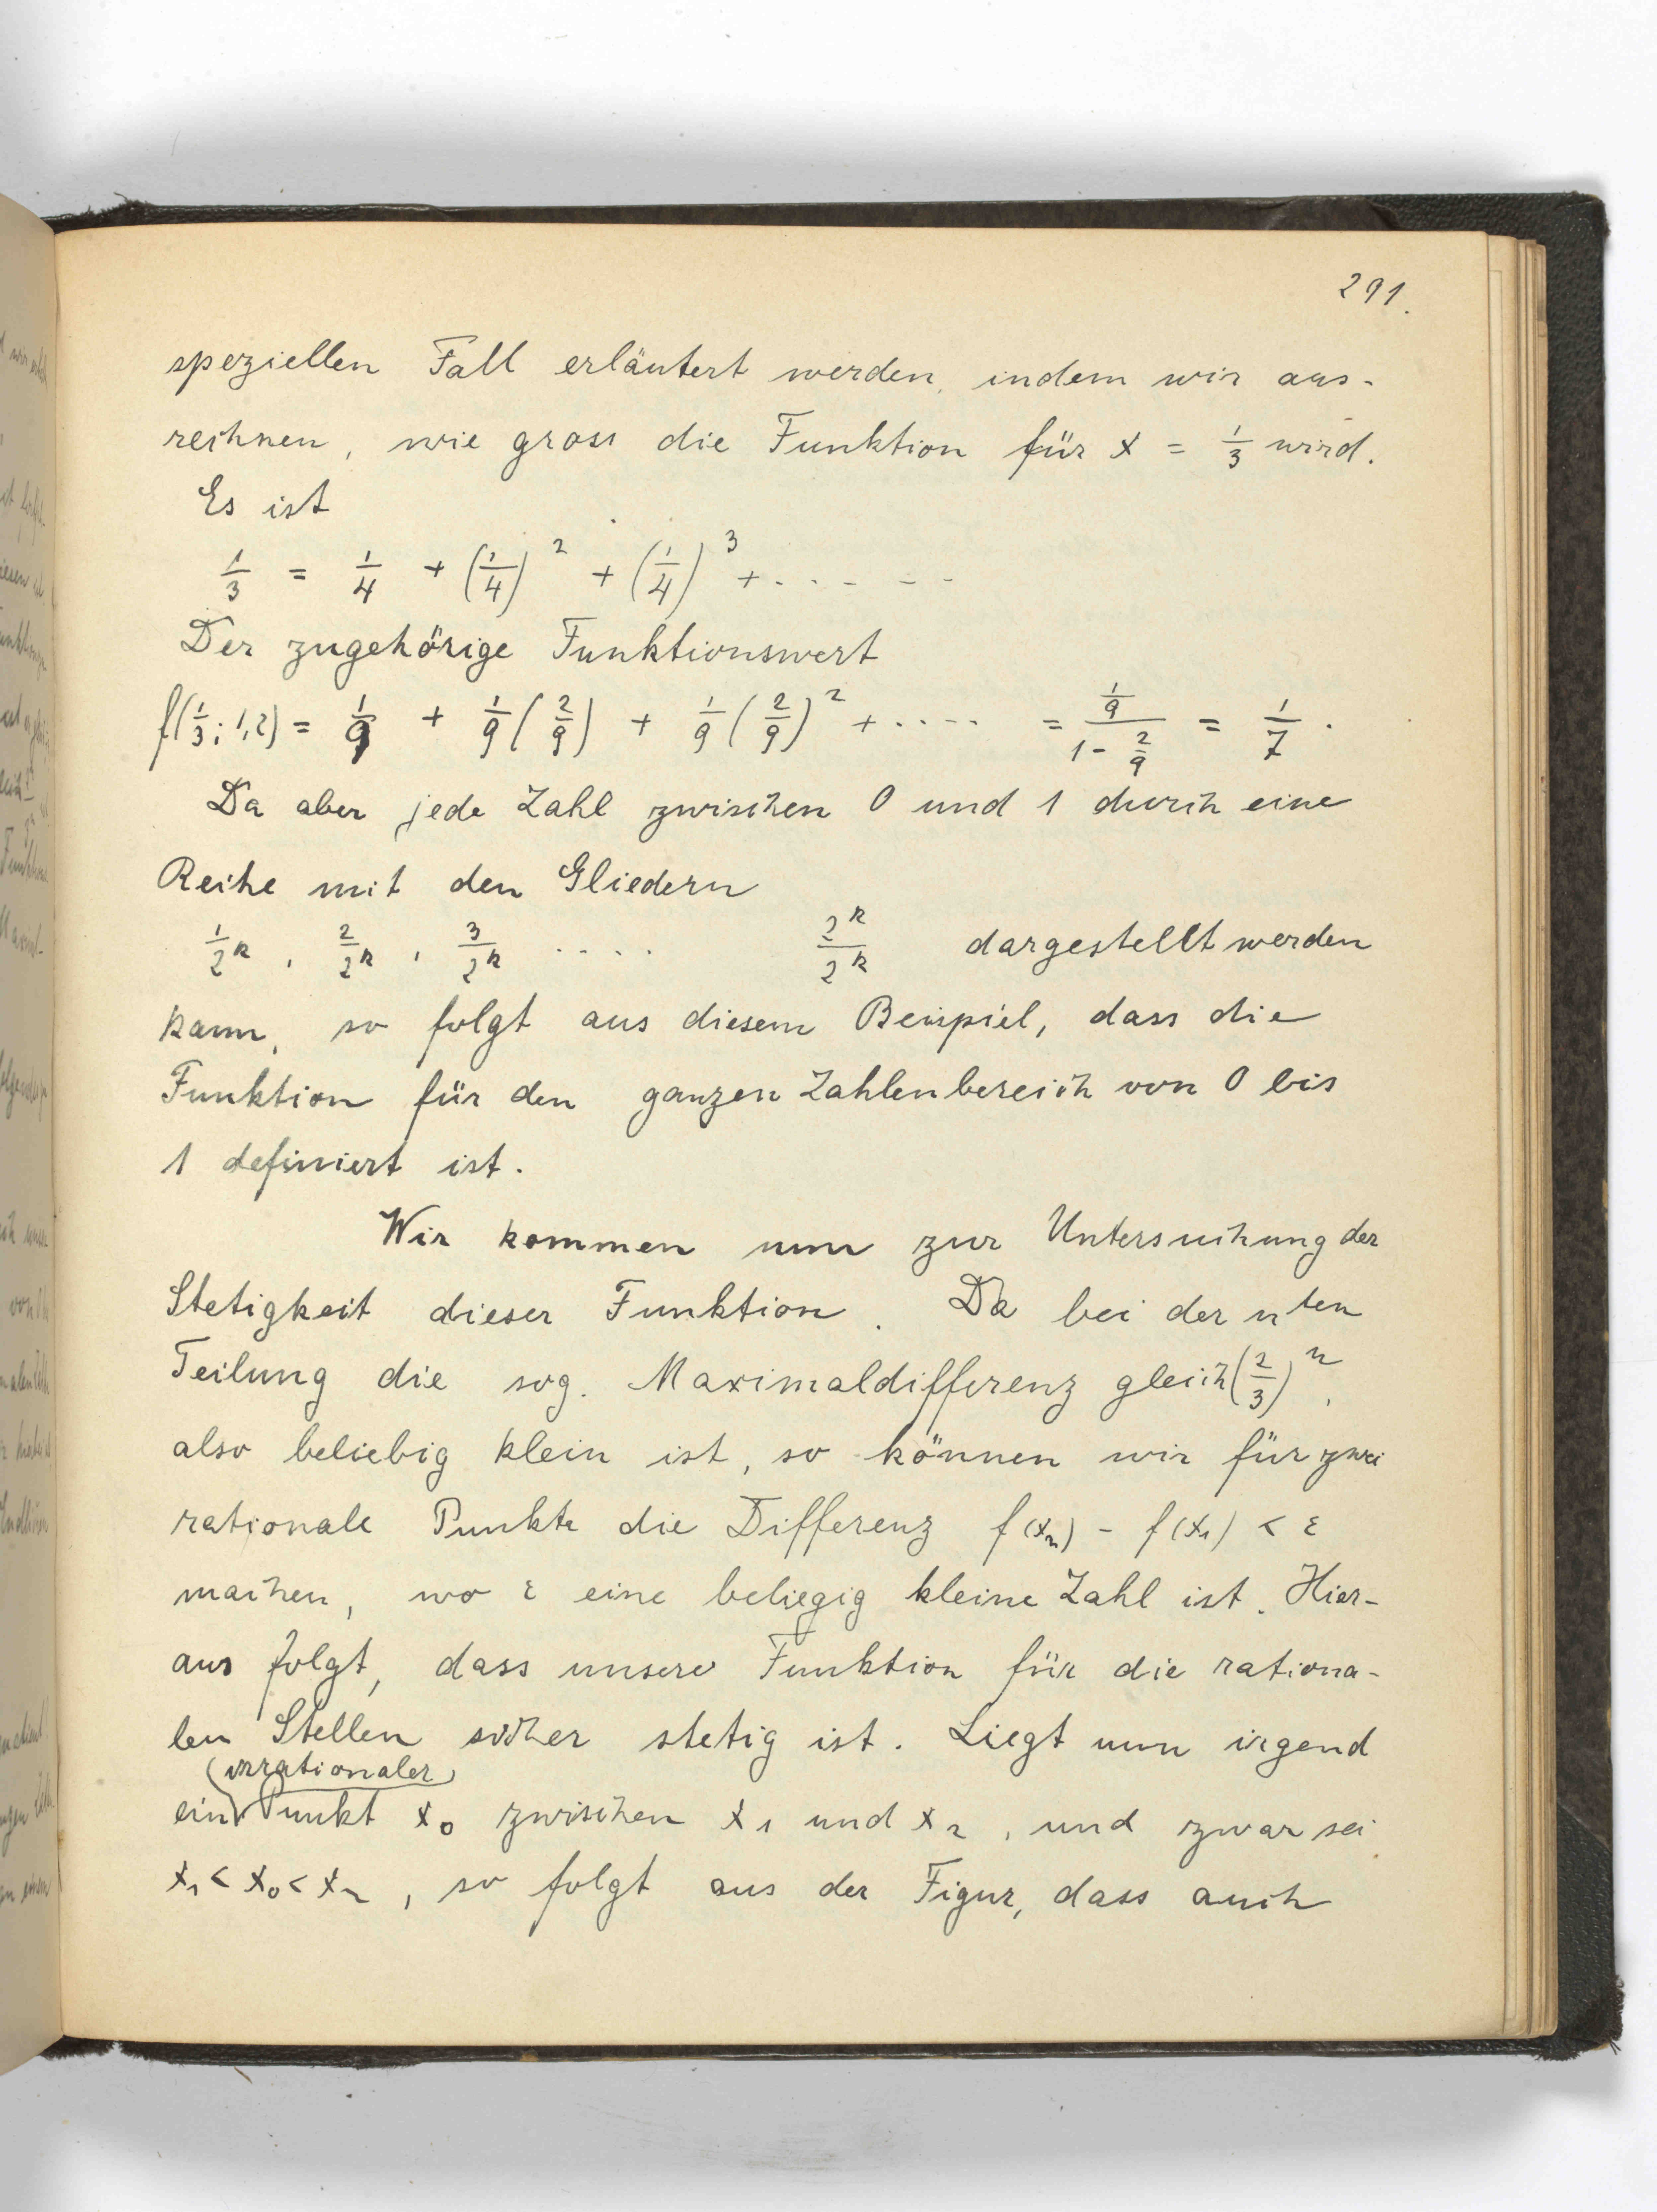 291.
speziellen Fall erläutert werden, indem wir aus-
rechnen, wie gross die Funktion für x = 1/3 wird.
Es ist
1/3 = 1/4 + (1/4)² + (1/4)³ + . . . . . .
Der zugehörige Funktionswert
f(1/3; 1,2) = 1/9 + 1/9 (2/9) + 1/9 (2/9)² + . . . . . = (1/9)/(1 - 2/9) = 1/7 .
Da aber jede Zahl zwischen 0 und 1 durch eine
Reihe mit den Gliedern
1/2^k , 2/2^k , 3/2^k . . . . 2^k/2^k dargestellt werden
kann, so folgt aus diesem Beispiel, dass die
Funktion für den ganzen Zahlenbereich von 0 bis
1 definiert ist.
Wir kommen nun zur Untersuchung der
Stetigkeit dieser Funktion. Da bei der n^ten
Teilung die sog. Maximaldifferenz gleich (2/3)^n,
also beliebig klein ist, so können wir für zwei
rationale Punkte die Differenz f(x₂) - f(x₁) < ε
machen, wo ε eine beliegig kleine Zahl ist. Hier-
aus folgt, dass unsere Funktion für die rationa-
len Stellen sicher stetig ist. Liegt nun irgend
(irrationaler)
ein Punkt x₀ zwischen x₁ und x₂, und zwar sei
x₁ < x₀ < x₂, so folgt aus der Figur, dass auch